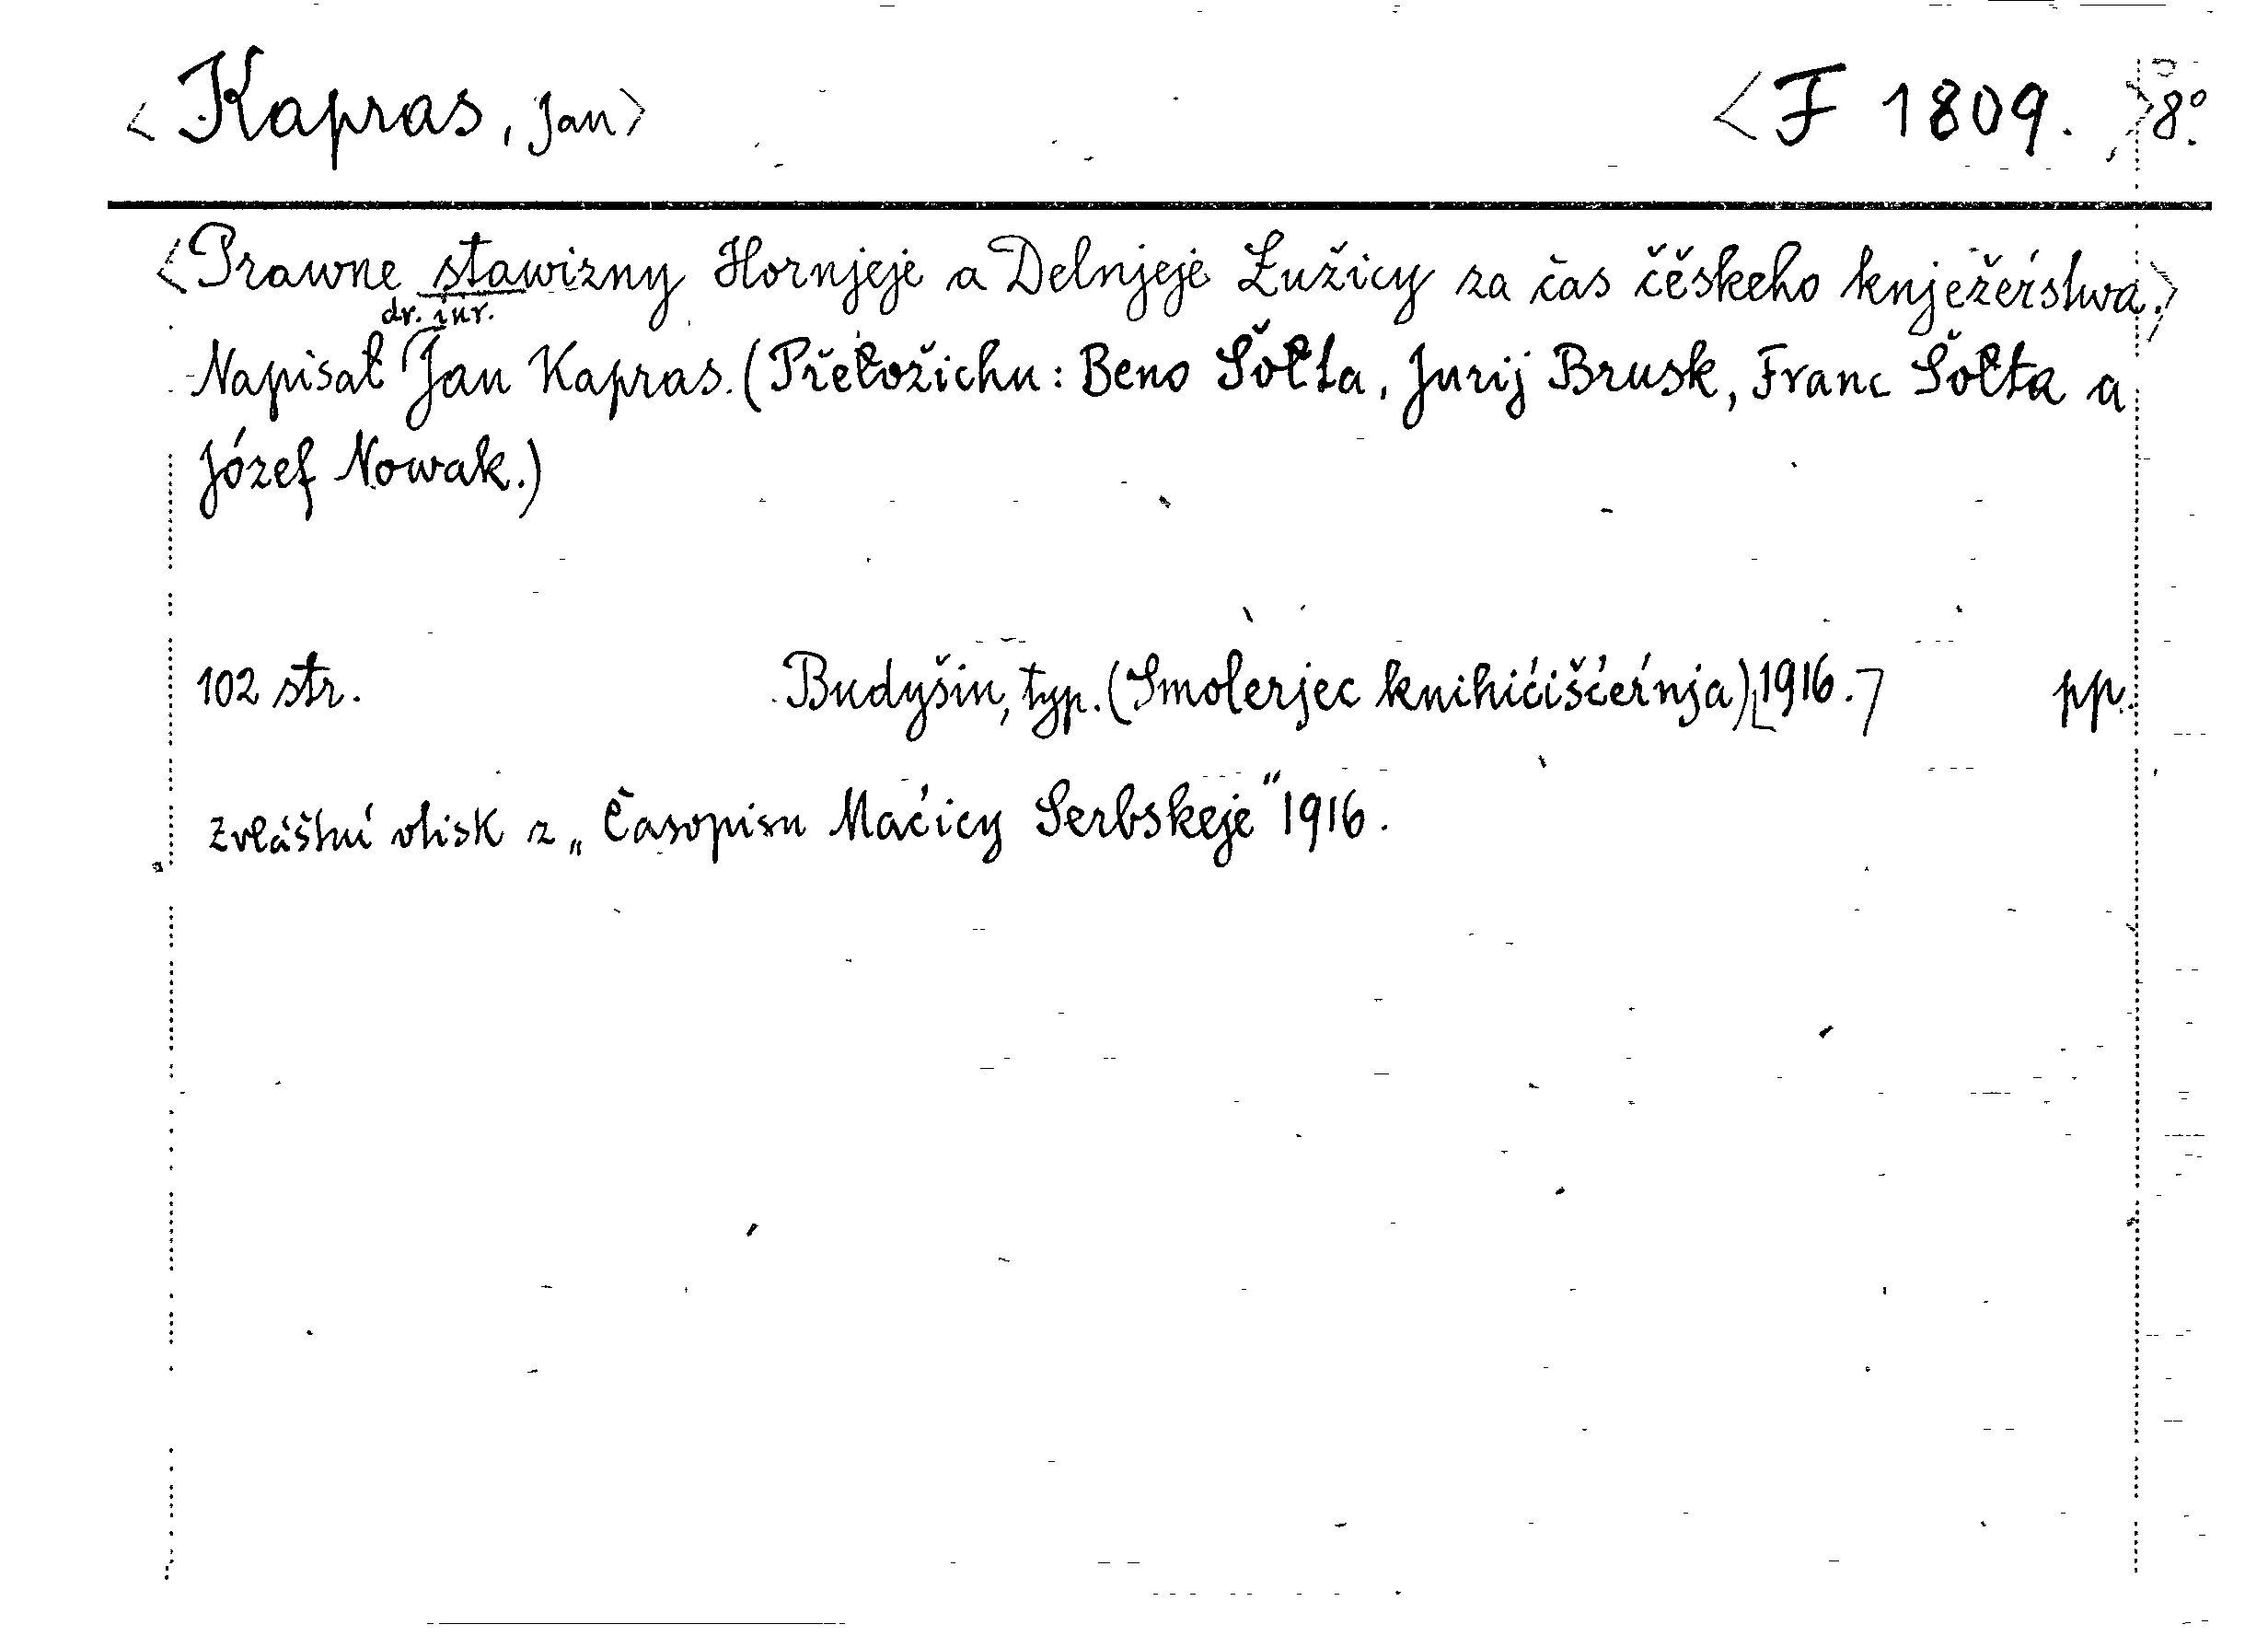 <Kapras, Jan> <F 1809.> 8°.
<Prawne stawizny Hornjeje a Delnjeje Łužicy za čas čěskeho knježeŕstwa.>
dr. iur.
Napisał Jan Kapras. (Přełožichu: Beno Šołta, Jurij Brusk, Franc Šołta a
Józef Nowak.)
102 str. Budyšin, typ. (Smolerjec knihićišćeŕnja) [1916.] pp.
Zvláštní otisk z „Časopisu Maćicy Serbskeje" 1916.